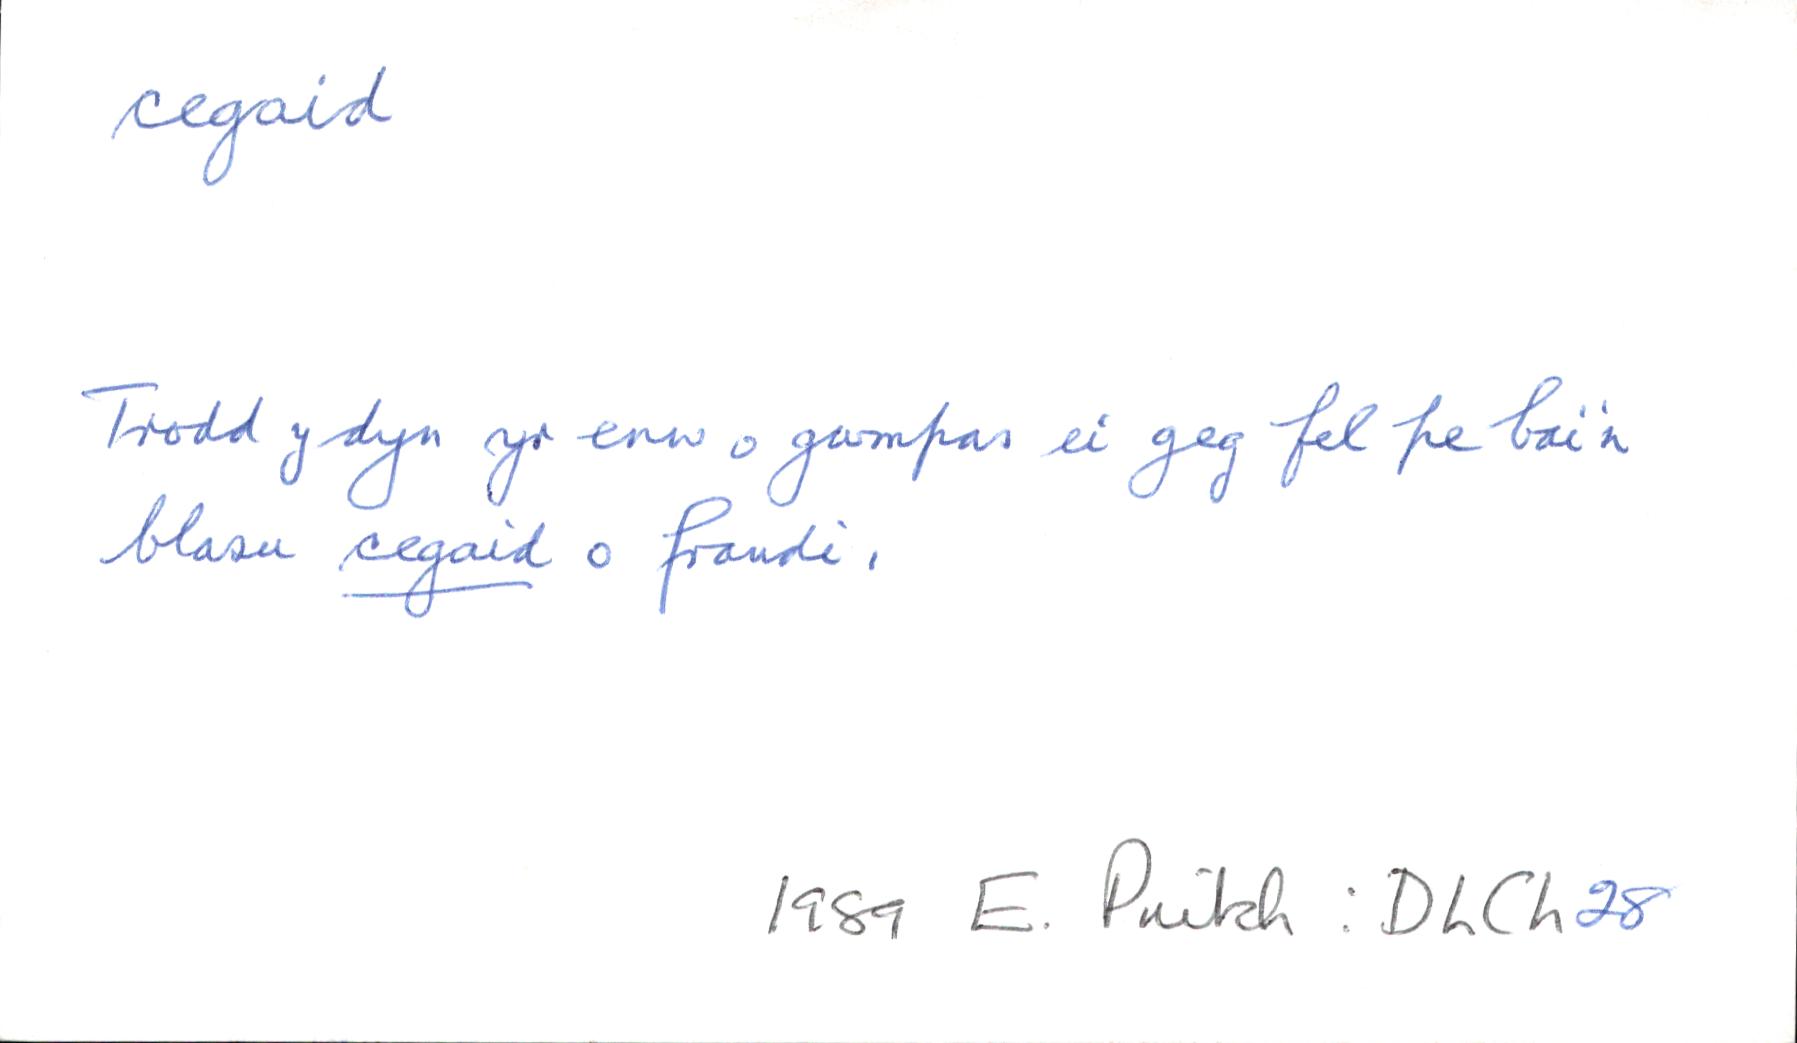 cegaid
Trodd y dyn yr enw o gwmpas ei geg fel pe bai'n
blasu cegaid o frandi.
1989 E. Pritch : DLCh 28